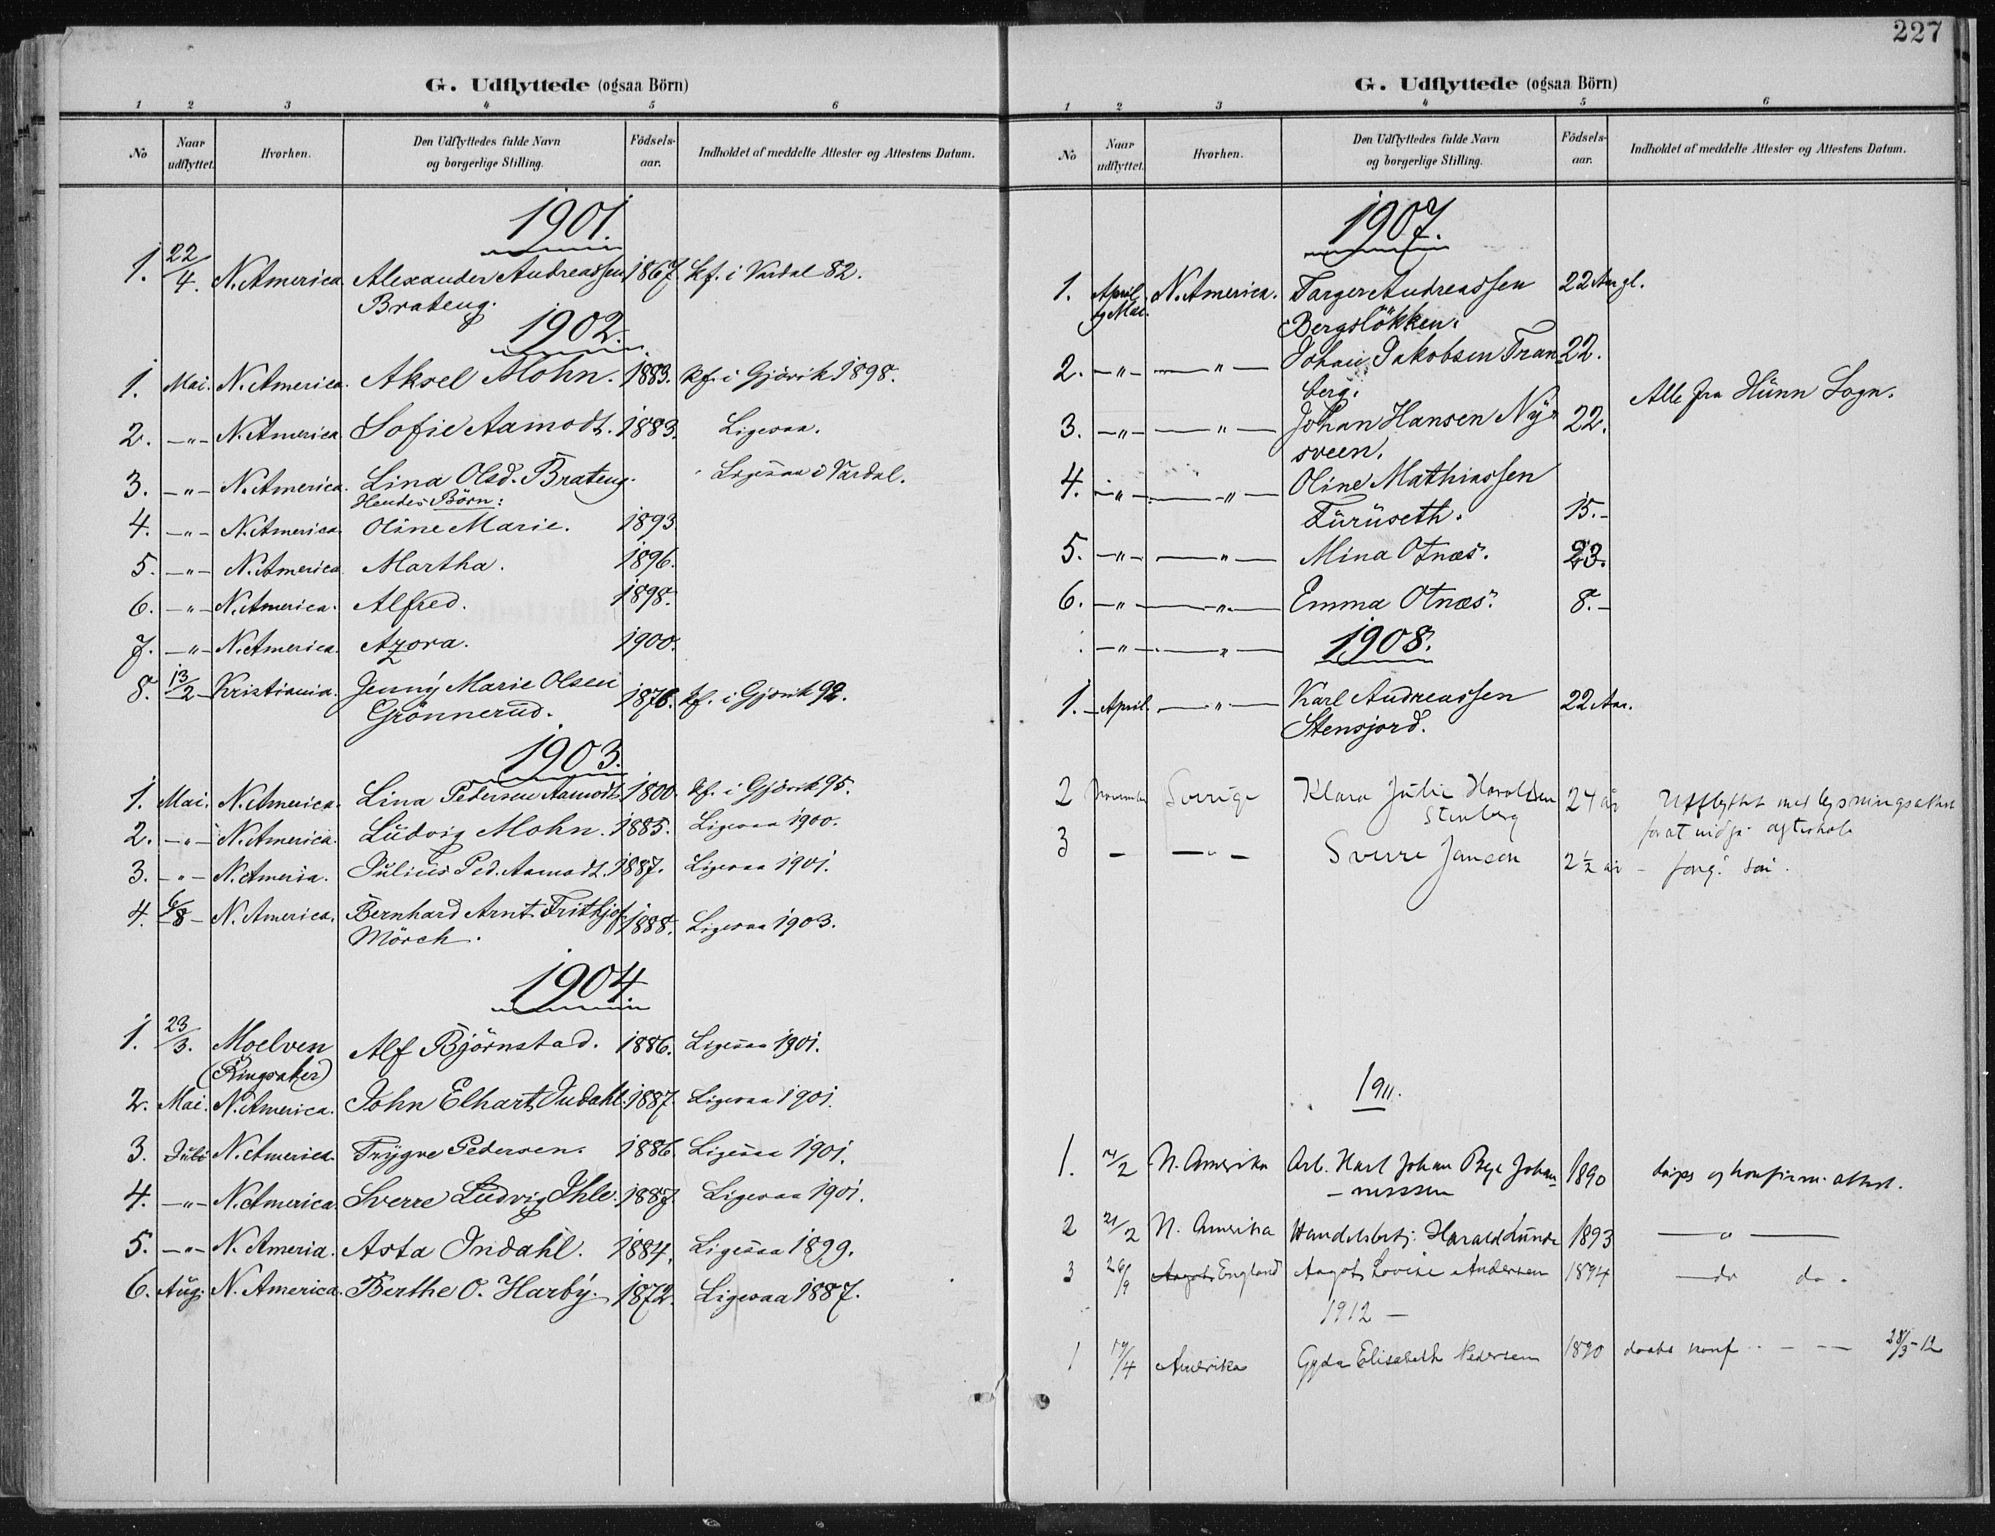 G. Udflyttede (ogsaa Börn)
1 2 3 4 5 6
No Naar udflyttet. Hvorhen. Den Udflyttedes fulde Navn og borgerlige Stilling. Födsels-aar. Indholdet af meddelte Attester og Attestens Datum.
1901.
1. 22/4. N. America. Alexander Andreassen 1867. kf. i Vardal 82.
Brateng.
1902.
1. Mai. N. America. Aksel Mohn. 1883. kf. i Gjövik 1898.
2. -"- N. America Sofie Aamodt. 1883. Ligesaa.
3. -"- N. America. Lina Olsd. Brateng. Ligesaa i Vardal.
Hendes Börn:
4. -"- N. America. Oline Marie. 1893
5. -"- N. America Martha. 1896.
6. -"- N. America. Alfred. 1898.
7. -"- N. America. Azora. 1900.
8. 13/2 Kristiania. Jenny Marie Olsen 1876. kf. i Gjövik 92.
Grönnerud.
1903.
1. Mai. N. America. Lina Pedersen Aamodt 1800. kf. i Gjövik 95.
2. -"- N. America. Ludvig Mohn. 1885. Ligesaa 1900.
3. -"- N. Ameria. Julius Ped. Aamodt. 1887. Ligesaa 1901.
4. 6/8 N. America. Bernhard Arnt Frithjof 1888. Ligesaa 1903.
Mörch.
1904.
1. 23/3. Moelven Alf Björnstad. 1886. Ligesaa 1901.
(Ringsaker)
2. Mai. N. America. John Elhart Indahl. 1887. Ligesaa 1901.
3. Juli N. America. Trygve Pedersen. 1886. Ligesaa 1901.
4. -"- N. America. Sverre Ludvig Ihle. 1887 Ligesaa 1901.
5. -"- N. Ameria. Asta Indahl. 1884. Ligesaa 1899.
6. Aug. N. America. Berthe O. Harby. 1872. Ligesaa 1887.
227
G. Udflyttede (ogsaa Börn)
1 2 3 4 5 6
No Naar udflyttet. Hvorhen. Den Udflyttedes fulde Navn og borgerlige Stilling. Födsels-aar. Indholdet af meddelte Attester og Attestens Datum.
1907.
1. April og Mai. N. America. Andreassen 22 Aar gl.
Bergslökken.
2. -"- -"- Johan Jakobsen Tran 22.
berg.
Alle fra Hunn Sogn.
3. -"- -"- Johan Hansen Ny- 22.
sveen.
4. -"- -"- Oline Mathiassen
Furuseth. 15.-
5. -"- -"- Mina Otnæs. 23.
6. -"- -"- Emma Otnæs. 8.-
-"- -"- 1908.
1. April. -"- Karl Andreassen 22 Aar.
Stensjord.
2 November Sverige Klara Julie Haraldsen 24 år Utflyttet med lysningsattest
Stenberg
3 - -"- Sverre Jansen 2 1/2 år
1911.
1. /2 N. Amerika Arb. Karl Johan Bye Johan- 1890 daaps og konfirm. attest.
-nessen
2 21/2 N. Amerika Handelsbetj. Harald Lunde 1893 -"-
3 26/9 England Aagot Lovise Andersen 1894 -do do.
1912 -
1 19/4 Amerika Gyda Elisabeth Pedersen 1890 daabs konf -- 28/3-12